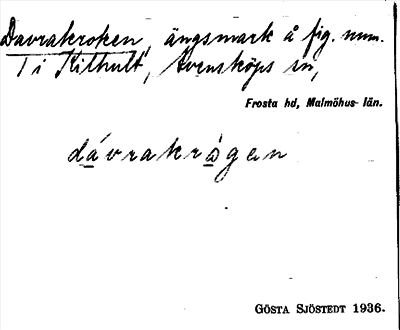 Davrakroken, ängsmark å fig. num.
1 i Killhult, Svensköps sn,
Frosta hd, Malmöhus- län.
dávrakrågen
GÖSTA SJÖSTEDT 1936.